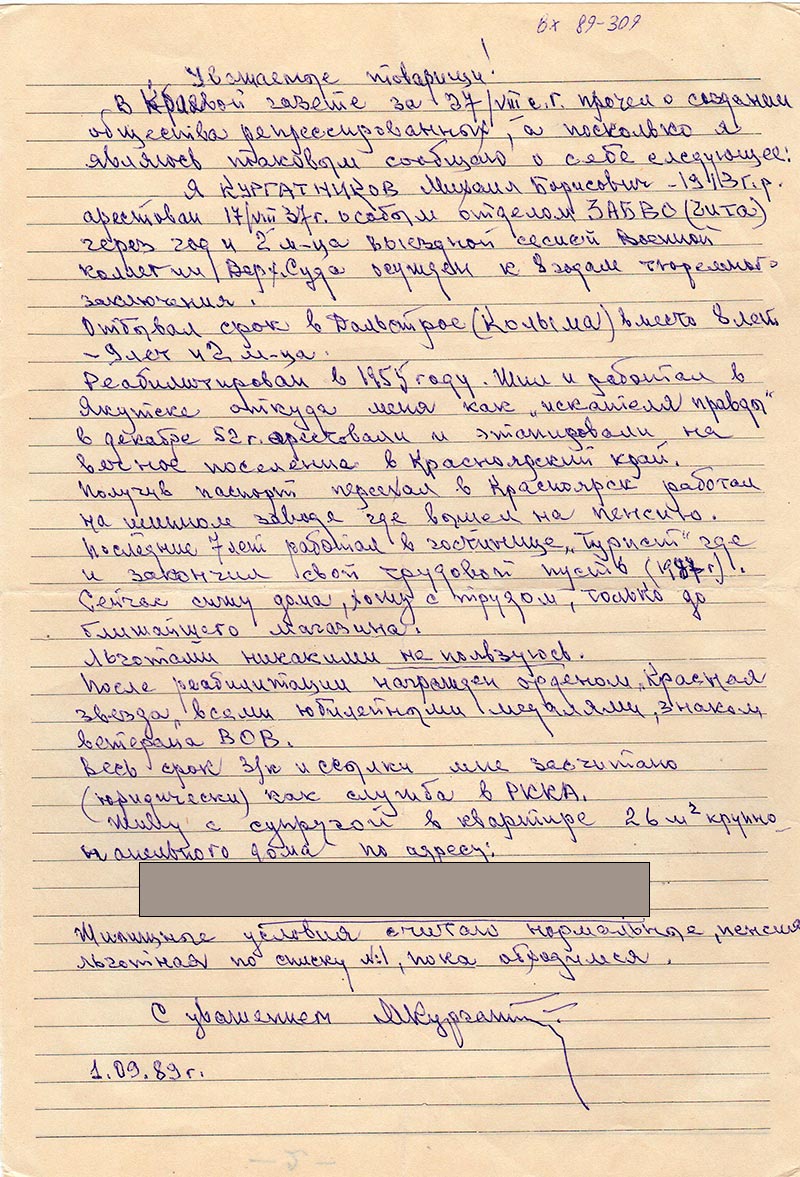 вх 89-309
Уважаемые товарищи!
В Краевой газете за 37/VIII с.г. прочел о создании
общества репрессированных, а посколько я
являюсь таковым сообщаю о себе следующее:
Я КУРГАТНИКОВ Михаил Борисович - 1913 г.р.
арестован 17/VIII 37г. особым отделом ЗАБВО (Чита)
через год и 2 м-ца выездной сесией Военной
коллегии Верх. Суда осужден к 8 годам тюремного
заключения.
Отбывал срок в Дальстрое (Колыма) вместо 8 лет
- 9 лет и 2 м-ца.
Реабилитирован в 1955 году. Жил и работал в
Якутске откуда меня как „искателя правды"
в декабре 52 г. арестовали и этапировали на
вечное поселение в Красноярский край.
Получив паспорт переехал в Красноярск работал
на шинном заводе где вышел на пенсию.
Последние 7 лет работал в гостинице „Турист" где
и закончил свой трудовой путь (1987г).
Сейчас сижу дома, хожу с трудом, только до
ближайшего магазина.
Льготами никакими не пользуюсь.
После реабилитации награжден орденом „Красная
звезда", всеми юбилейными медалями, знаком
ветерана ВОВ.
Весь срок З/к и ссылки мне засчитано
(юридически) как служба в РККА.
Живу с супругой в квартире 26 м² крупно-
панельного дома по адресу:
Жилищные условия считаю нормальные, пенсия
льготная по списку №1, пока обходимся.
С уважением МКургат
1.09.89г.